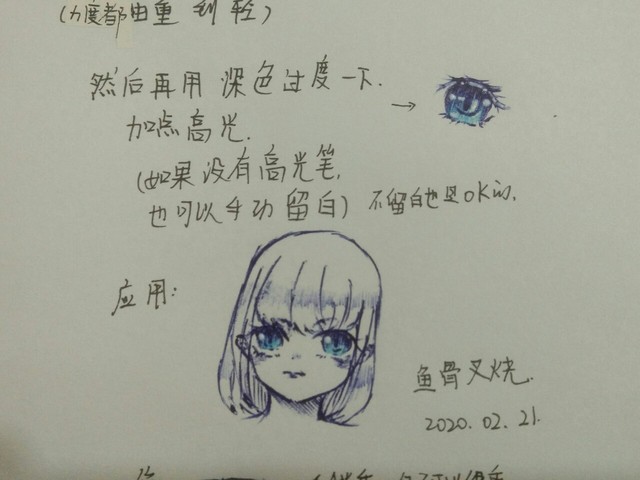 (力度都由重到轻)
然后再用深色过度一下.
→
加点高光.
(如果没有高光笔,
也可以手动留白) 不留白也是OK的,
应用:
鱼骨叉烧.
2020.02.21.